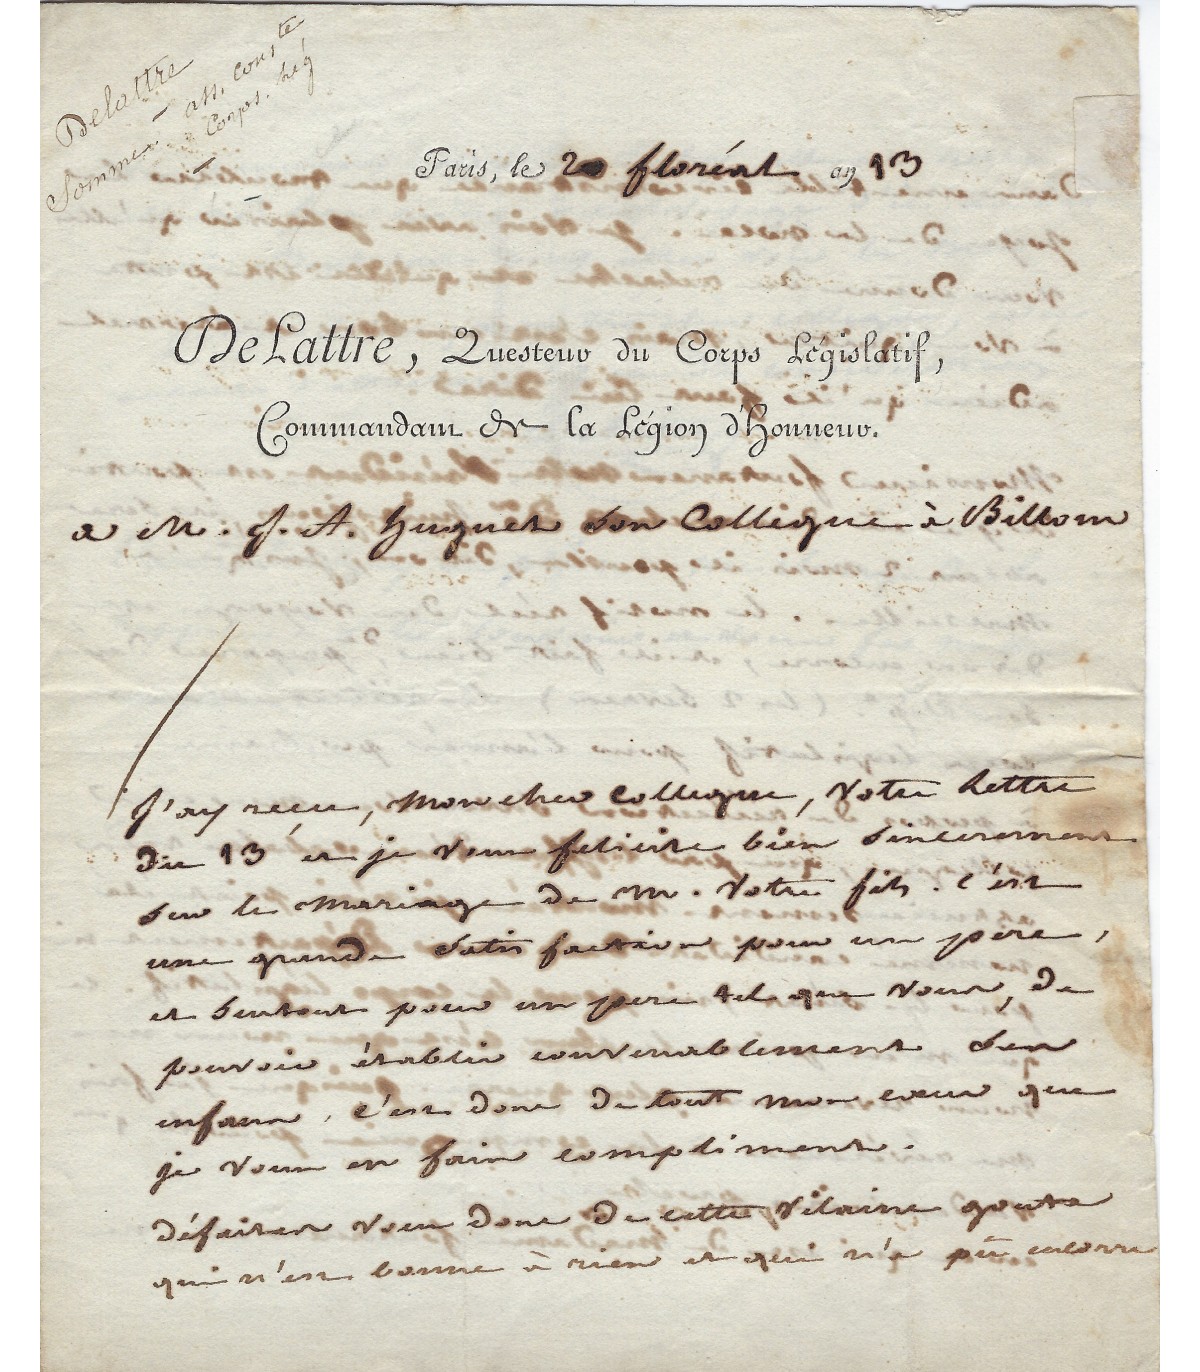 Delattre
Somme - ass. conste
& Corps. lég
Paris, le 20 floréal an 13
DeLattre, Questeur du Corps Législatif,
Commandant de la Légion d'Honneur.
a M. J. A. huguet son Collegue à Billom
J'ay recu, Mon cher Collegue, Votre lettre
du 13 et je vous felicite bien sincerement
sur le Mariage de M. Votre fils. c'est
une grande satisfaction pour un pere,
et surtout pour un pere tel que vous, de
pouvoir établir convenablement ses
enfans. c'est donc de tout mon cœur que
je vous en fais compliment.
défaites vous donc de cette vilaine goute
qui n'est bonne à rien et qui n'a pû encore